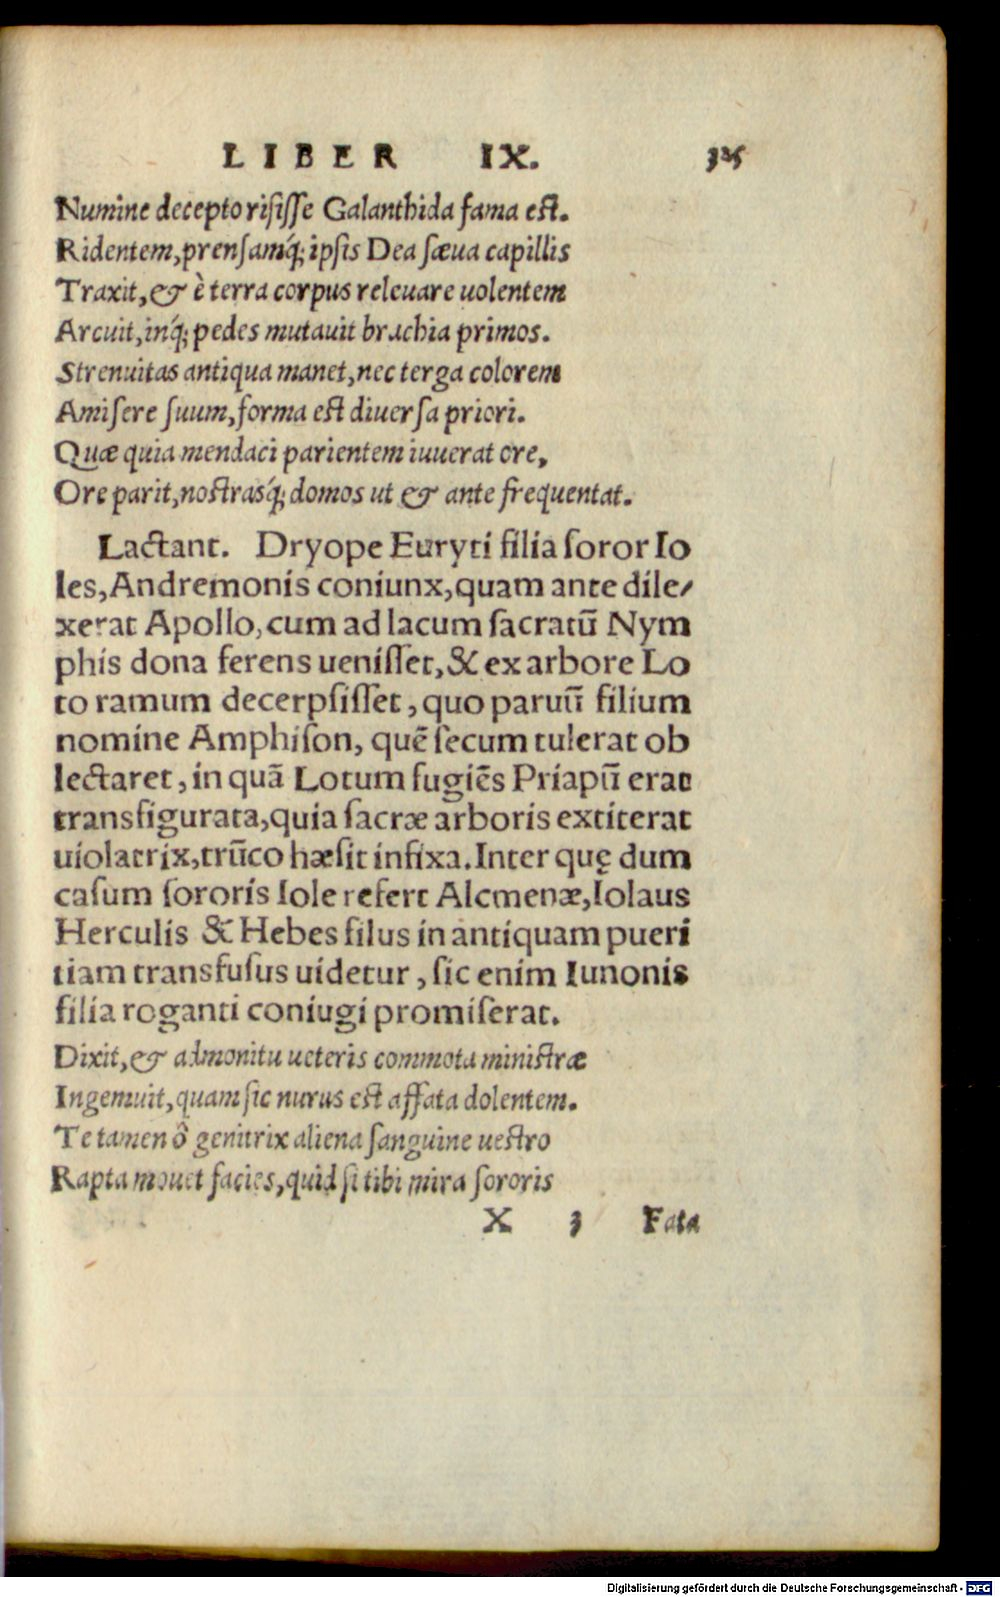 LIBER IX. 325
Numine decepto risisse Galanthida fama est.
Ridentem, prensamq́; ipsis Dea sæua capillis
Traxit, & è terra corpus releuare uolentem
Arcuit, inq́; pedes mutauit brachia primos.
Strenuitas antiqua manet, nec terga colorem
Amisere suum, forma est diuersa priori.
Quæ quia mendaci parientem iuuerat ore,
Ore parit, nostrasq́; domos ut & ante frequentat.
Lactant. Dryope Euryti filia soror Io
les, Andremonis coniunx, quam ante dile/
xerat Apollo, cum ad lacum sacratū Nym
phis dona ferens uenisset, & ex arbore Lo
to ramum decerpsisset, quo paruū filium
nomine Amphison, quē secum tulerat ob
lectaret, in quā Lotum fugiēs Priapū erat
transfigurata, quia sacræ arboris extiterat
uiolatrix, trūco hæsit infixa. Inter quę dum
casum sororis Iole refert Alcmenæ, Iolaus
Herculis & Hebes filus in antiquam pueri
tiam transfusus uidetur, sic enim Iunonis
filia roganti coniugi promiserat.
Dixit, & admonitu ueteris commota ministræ
Ingemuit, quam sic nurus est affata dolentem.
Te tamen ô genitrix aliena sanguine uestro
Rapta mouet facies, quid si tibi mira sororis
X 3 Fata
Digitalisierung gefördert durch die Deutsche Forschungsgemeinschaft - DFG